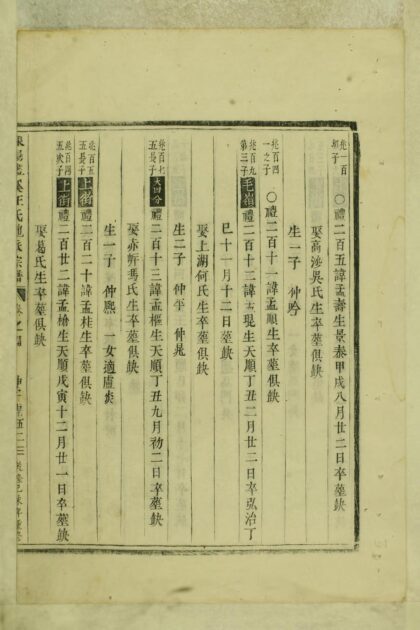 兆一百
〇禮二百五諱孟壽生景泰甲戌八月廿二日卒塟缺
娶高涉吳氏生卒塟俱缺
生一子 仲
兆百四
一之子
〇禮二百十一諱孟順生卒塟俱缺
兆百九
第三子
毛嶺
禮二百十三諱 生天順丁丑二月廿二日卒弘治丁
巳十一月十二日塟缺
娶上湖何氏生卒塟俱缺
生二子 仲平 仲晁
兆百七
五長子
大四分
禮二百十三諱孟樞生天順丁丑九月初二日卒塟缺
娶赤 馮氏生卒塟俱缺
生一子 仲熙 一女適盧
兆百五
五長子
上街
禮二百二十諱孟桂生卒塟俱缺
兆百四
五次子
上街
禮二百廿二諱孟 生天順戊寅十二月廿一日卒塟缺
娶葛氏生卒塟俱缺